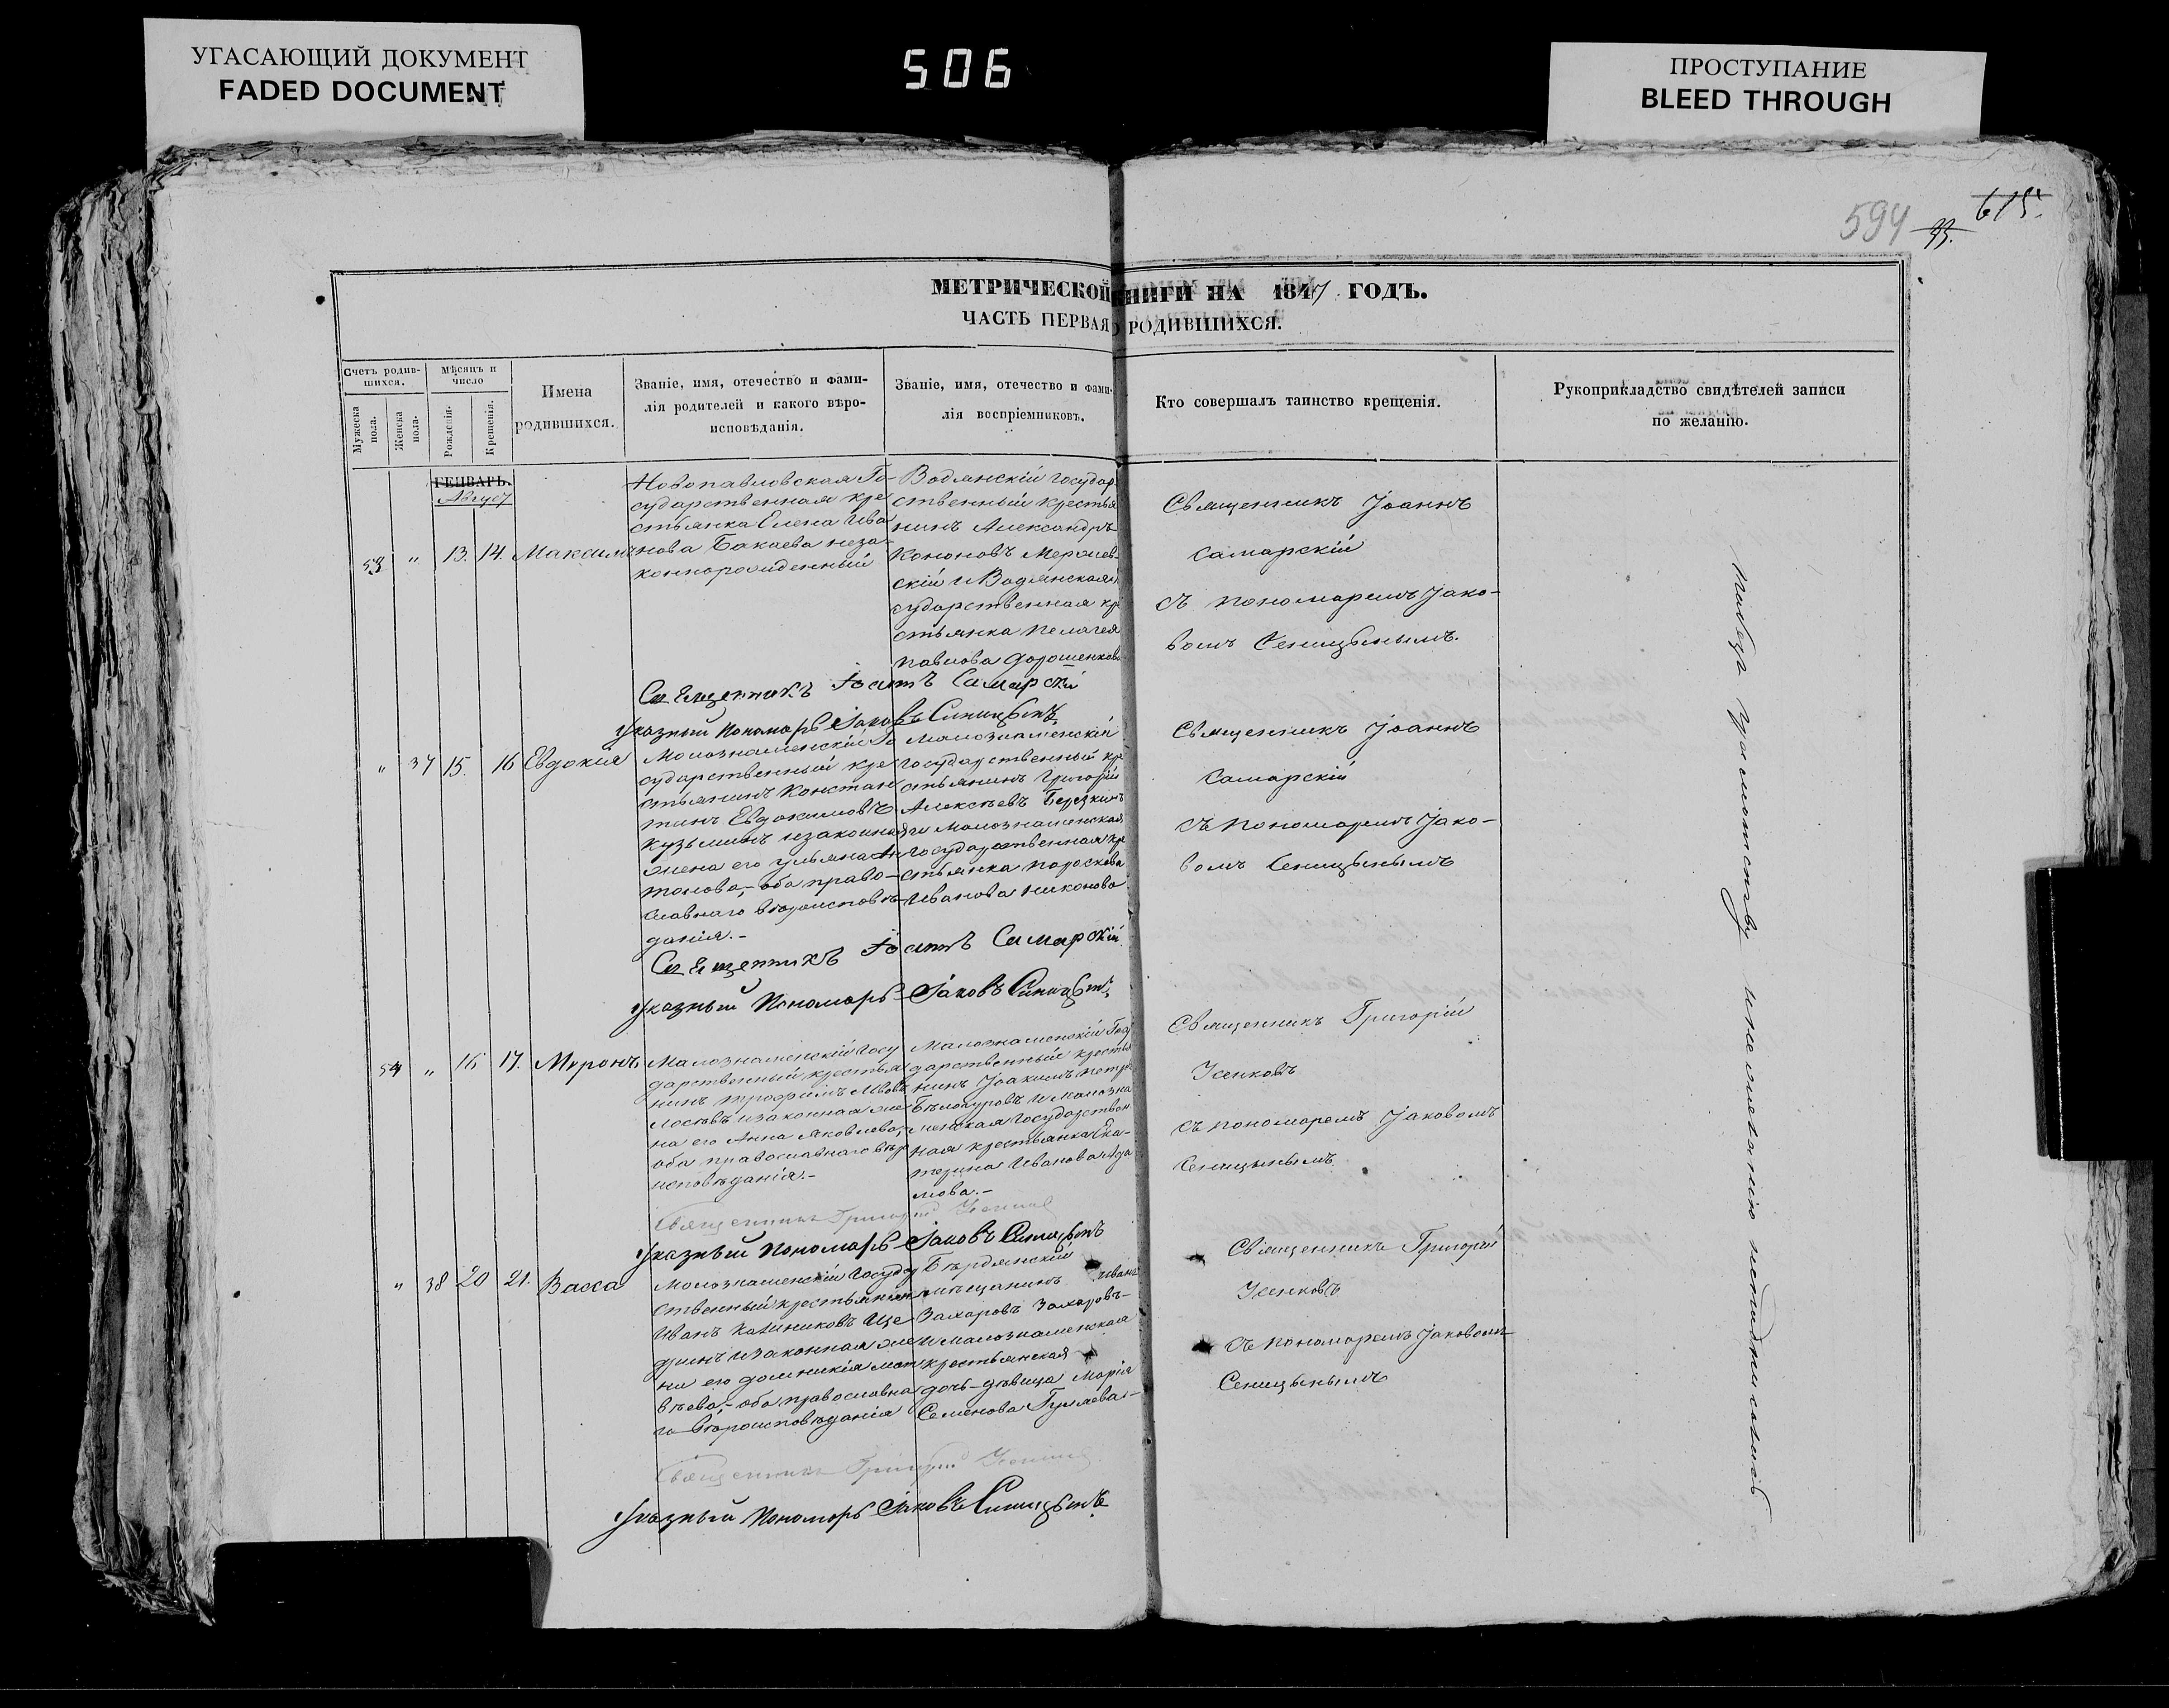 УГАСАЮЩИЙ ДОКУМЕНТ
FADED DOCUMENT
506
ПРОСТУПАНИЕ
BLEED THROUGH
594
93.
615.
МЕТРИЧЕСКОЙ КНИГИ НА 1847 ГОДЪ.
ЧАСТЬ ПЕРВАЯ О РОДИВШИХСЯ.
Счетъ родив-
шихся.
Мужеска
пола.
Женска
пола.
Мѣсяцъ и
число
Рожденія.
Крещенія.
Имена
родившихся.
Званіе, имя, отечество и фами-
лія родителей и какого вѣро-
исповѣданія.
Званіе, имя, отечество и фами-
лія воспріемниковъ.
Кто совершалъ таинство крещенія.
Рукоприкладство свидѣтелей записи
по желанію.
ГЕНВАРЬ.
Август
53 " 13. 14. Максимъ
Новопавловская Го-
сударственная кре
стьянка Елена Ива
нова Бакаева неза-
коннорожденный
Водянскій государ-
ственный крестья
нинъ Александръ
Кононовъ
скій и Водянская го
сударственная кре
стьянка Пелагея
Павлова Дорошенкова
Священникъ Іоаннъ
Самарскій
съ пономаремъ Іако-
вомъ Сеницынымъ.
Священникъ Іоаннъ Самарскій
Указный Пономарь Іаковъ Синицынъ
" 37 15. 16 Евдокия
Малознаменскій Го
сударственный кре
стьянинъ Констан
тинъ Евдокимовъ
Кузьминъ и законная
жена его Ульяна Ан
тонова, оба право-
славнаго вѣроисповѣ-
данія.-
Малознаменскій
государственный кре
стьянинъ Григорій
Алексѣевъ Березкинъ
и Малознаменская
государственная кре
стьянка Параскева
Иванова Никонова
Священникъ Іоаннъ
Самарскій
съ пономаремъ Іако-
вомъ Сеницынымъ
Священникъ Іоаннъ Самарскій
Указный Пономарь Іаковъ Синицынъ
54 " 16 17. Миронъ
Малознаменскій Госу
дарственный крестья
нинъ Трофимъ
Лосевъ и законная же
на его Анна Яковлева,
оба православнаго вѣро
исповѣданія.-
Малознаменскій Госу
дарственный крестья
нинъ Іоакимъ Петровъ
Бѣлокуровъ и Малозна
менская Государствен
ная крестьянка Ека-
терина Иванова Ада
мова.-
Священникъ Григорій
Усенковъ
съ пономаремъ Іаковомъ
Сеницынымъ
Священникъ Григорій Усенковъ
Указный Пономарь Іаковъ Синицынъ
" 38 20 21. Васса
Малознаменскій Государ
ственный крестьянинъ
Иванъ Калиниковъ Ще
дринъ и законная же
на его Домникія Мат
вѣева, оба православна
го вѣроисповѣданія
Бердянскій
мѣщанинъ Иванъ
Захаровъ Захаровъ-
и Малознаменская
крестьянская
дочь-дѣвица Марія
Семенова Гуляева.-
Священникъ Григорій
Усенковъ
съ пономаремъ Іаковомъ
Сеницынымъ
Священникъ Григорій Усенковъ
Указный Пономарь Іаковъ Синицынъ